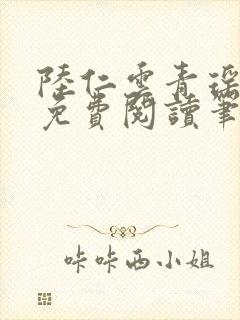 陸仁雲青瑤
免費閱讀筆
咔咔西小姐